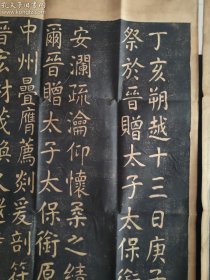 丁亥朔越十三日庚子
祭於晉贈太子太保衛
安瀾疏瀹仰懷桑之績
爾晉贈太子太保衛原
中州疊膺薦剡爰剖符